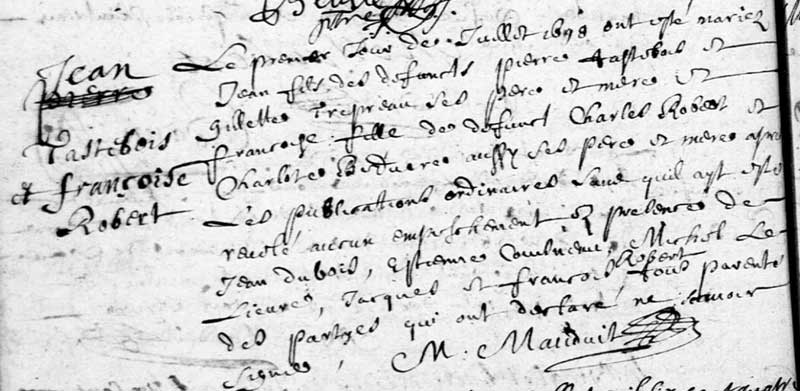 Jean
pierre
Tastebois
et françoise
Robert
Le premier Jour de Juillet 1698 ont esté mariez
Jean fils des defuncts pierre Tastebois et
Gillette ses pere et mere et
francoise fille de defunct Charles Robert et
Charlote aussy ses pere et mere apres
Les publications ordinaires sans quil ayt esté
reuelé aucun empeschement en presence de
Jean dubois, Estienne Michel Le
Lieure, Jacques et francois Robert tous parents
des partyes qui ont declaré ne scauoir
signer, M. Mauduit